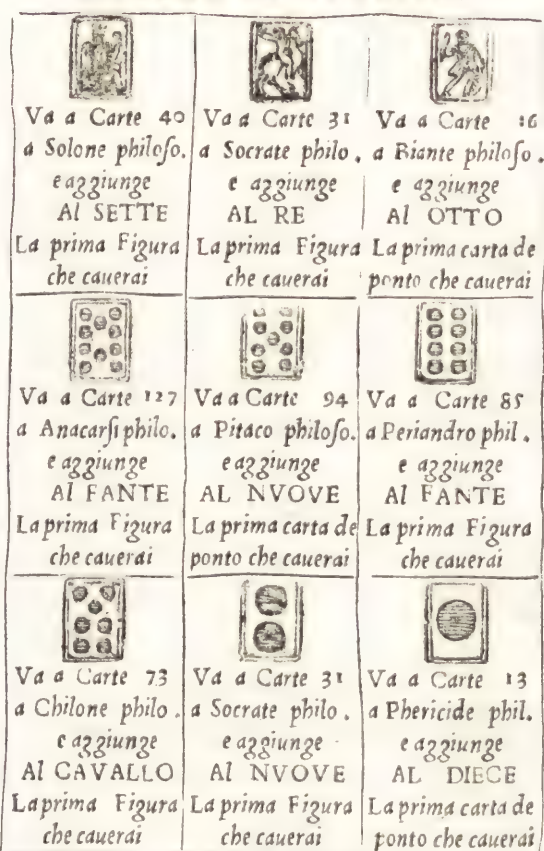 Va a Carte 40
a Solone philoſo.
e aggiunge
Al SETTE
La prima Figura
che cauerai
Va a Carte 31
a Socrate philo.
e aggiunge
AL RE
La prima Figura
che cauerai
Va a Carte 16
a Biante philoſo.
e aggiunge
Al OTTO
La prima carta de
ponto che cauerai
Va a Carte 127
a Anacarſi philo.
e aggiunge
Al FANTE
La prima Figura
che cauerai
Va a Carte 94
a Pitaco philoſo.
e aggiunge
AL NVOVE
La prima carta de
ponto che cauerai
Va a Carte 85
a Periandro phil.
e aggiunge
Al FANTE
La prima Figura
che cauerai
Va a Carte 73
a Chilone philo.
e aggiunge
Al CAVALLO
La prima Figura
che cauerai
Va a Carte 31
a Socrate philo.
e aggiunge
Al NVOVE
La prima Figura
che cauerai
Va a Carte 13
a Phericide phil.
e aggiunge
AL DIECE
La prima carta de
ponto che cauerai